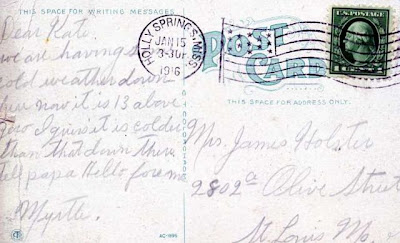 THIS SPACE FOR WRITING MESSAGES
Dear Kate.
we are having
cold weather down
here now it is 13 above
zero I guess it is colder
than that down there
tell papa Hello for me
Myrtle.
HOLLY SPRINGS, MISS.
JAN 15
3-30P
1916
POST
CARD
THIS SPACE FOR ADDRESS ONLY.
Mrs. James Holster
2802a Olive Street
St Louis Mo.
AC-1695